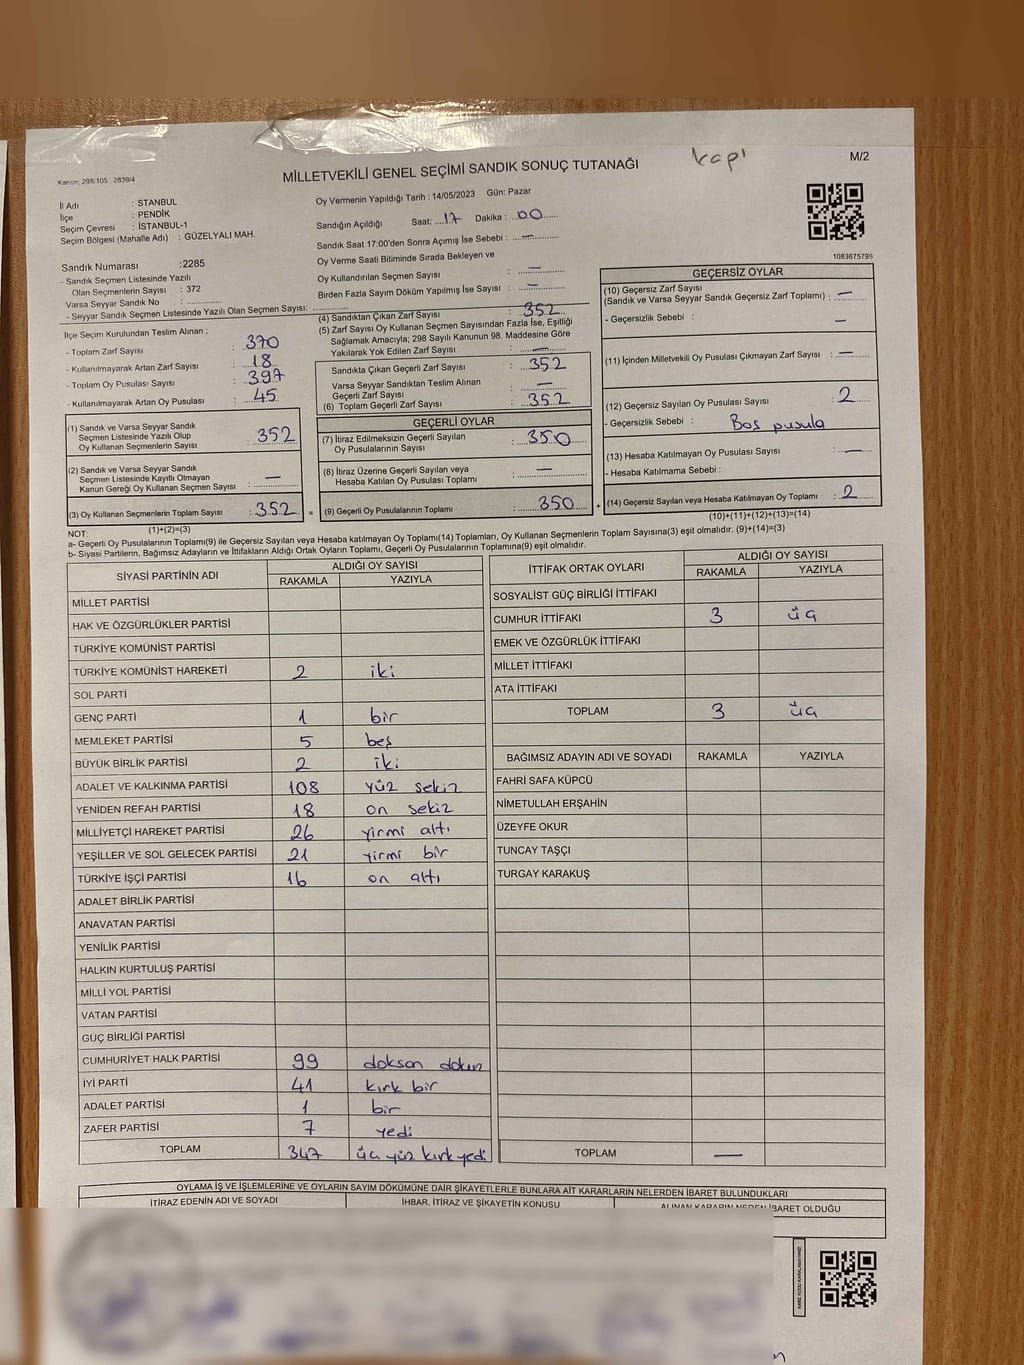 kapı
Kanun: 298/105 , 2839/4
MİLLETVEKİLİ GENEL SEÇİMİ SANDIK SONUÇ TUTANAĞI
M/2
İl Adı : STANBUL
İlçe : PENDİK
Seçim Çevresi : İSTANBUL-1
Seçim Bölgesi (Mahalle Adı) : GÜZELYALI MAH.
Oy Vermenin Yapıldığı Tarih : 14/05/2023 Gün: Pazar
Sandığın Açıldığı Saat: 17 Dakika : 00
Sandık Saat 17:00'den Sonra Açımış İse Sebebi : —
Oy Verme Saati Bitiminde Sırada Bekleyen ve
Oy Kullandırılan Seçmen Sayısı : —
Birden Fazla Sayım Döküm Yapılmış İse Sayısı : —
1083675795
Sandık Numarası :2285
- Sandık Seçmen Listesinde Yazılı
Olan Seçmenlerin Sayısı : 372
Varsa Seyyar Sandık No :
- Seyyar Sandık Seçmen Listesinde Yazılı Olan Seçmen Sayısı:
İlçe Seçim Kurulundan Teslim Alınan :
- Toplam Zarf Sayısı : 370
- Kullanılmayarak Artan Zarf Sayısı : 18
- Toplam Oy Pusulası Sayısı : 397
- Kullanılmayarak Artan Oy Pusulası : 45
(1) Sandık ve Varsa Seyyar Sandık
Seçmen Listesinde Yazılı Olup
Oy Kullanan Seçmenlerin Sayısı : 352
(2) Sandık ve Varsa Seyyar Sandık
Seçmen Listesinde Kayıtlı Olmayan
Kanun Gereği Oy Kullanan Seçmen Sayısı : —
(3) Oy Kullanan Seçmenlerin Toplam Sayısı : 352 =
(1)+(2)=(3)
(4) Sandıktan Çıkan Zarf Sayısı : 352
(5) Zarf Sayısı Oy Kullanan Seçmen Sayısından Fazla İse, Eşitliği
Sağlamak Amacıyla; 298 Sayılı Kanunun 98. Maddesine Göre
Yakılarak Yok Edilen Zarf Sayısı : —
Sandıkta Çıkan Geçerli Zarf Sayısı : 352
Varsa Seyyar Sandıktan Teslim Alınan
Geçerli Zarf Sayısı : —
(6) Toplam Geçerli Zarf Sayısı : 352
GEÇERLİ OYLAR
(7) İtiraz Edilmeksizin Geçerli Sayılan
Oy Pusulalarının Sayısı : 350
(8) İtiraz Üzerine Geçerli Sayılan veya
Hesaba Katılan Oy Pusulası Toplamı : —
(9) Geçerli Oy Pusulalarının Toplamı : 350 +
GEÇERSİZ OYLAR
(10) Geçersiz Zarf Sayısı
(Sandık ve Varsa Seyyar Sandık Geçersiz Zarf Toplamı) : —
- Geçersizlik Sebebi : —
(11) İçinden Milletvekili Oy Pusulası Çıkmayan Zarf Sayısı : —
(12) Geçersiz Sayılan Oy Pusulası Sayısı : 2
- Geçersizlik Sebebi : Boş pusula
(13) Hesaba Katılmayan Oy Pusulası Sayısı : —
- Hesaba Katılmama Sebebi :
(14) Geçersiz Sayılan veya Hesaba Katılmayan Oy Toplamı : 2
(10)+(11)+(12)+(13)=(14)
NOT:
a- Geçerli Oy Pusulalarının Toplamı(9) ile Geçersiz Sayılan veya Hesaba katılmayan Oy Toplamı(14) Toplamları, Oy Kullanan Seçmenlerin Toplam Sayısına(3) eşit olmalıdır. (9)+(14)=(3)
b- Siyasi Partilerin, Bağımsız Adayların ve İttifakların Aldığı Ortak Oyların Toplamı, Geçerli Oy Pusulalarının Toplamına(9) eşit olmalıdır.
SİYASİ PARTİNİN ADI ALDIĞI OY SAYISI
RAKAMLA YAZIYLA
MİLLET PARTİSİ
HAK VE ÖZGÜRLÜKLER PARTİSİ
TÜRKİYE KOMÜNİST PARTİSİ
TÜRKİYE KOMÜNİST HAREKETİ 2 iki
SOL PARTİ
GENÇ PARTİ 1 bir
MEMLEKET PARTİSİ 5 beş
BÜYÜK BİRLİK PARTİSİ 2 iki
ADALET VE KALKINMA PARTİSİ 108 yüz sekiz
YENİDEN REFAH PARTİSİ 18 on sekiz
MİLLİYETÇİ HAREKET PARTİSİ 26 yirmi altı
YEŞİLLER VE SOL GELECEK PARTİSİ 21 yirmi bir
TÜRKİYE İŞÇİ PARTİSİ 16 on altı
ADALET BİRLİK PARTİSİ
ANAVATAN PARTİSİ
YENİLİK PARTİSİ
HALKIN KURTULUŞ PARTİSİ
MİLLİ YOL PARTİSİ
VATAN PARTİSİ
GÜÇ BİRLİĞİ PARTİSİ
CUMHURİYET HALK PARTİSİ 99 doksan dokuz
İYİ PARTİ 41 kırk bir
ADALET PARTİSİ 1 bir
ZAFER PARTİSİ 7 yedi
TOPLAM 347 üç yüz kırk yedi
İTTİFAK ORTAK OYLARI ALDIĞI OY SAYISI
RAKAMLA YAZIYLA
SOSYALİST GÜÇ BİRLİĞİ İTTİFAKI
CUMHUR İTTİFAKI 3 üç
EMEK VE ÖZGÜRLÜK İTTİFAKI
MİLLET İTTİFAKI
ATA İTTİFAKI
TOPLAM 3 üç
BAĞIMSIZ ADAYIN ADI VE SOYADI RAKAMLA YAZIYLA
FAHRİ SAFA KÜPCÜ
NİMETULLAH ERŞAHİN
ÜZEYFE OKUR
TUNCAY TAŞÇI
TURGAY KARAKUŞ
TOPLAM —
OYLAMA İŞ VE İŞLEMLERİNE VE OYLARIN SAYIM DÖKÜMÜNE DAİR ŞİKAYETLERLE BUNLARA AİT KARARLARIN NELERDEN İBARET BULUNDUKLARI
İTİRAZ EDENİN ADI VE SOYADI İHBAR, İTİRAZ VE ŞİKAYETİN KONUSU ALINAN KARARIN NEDEN İBARET OLDUĞU